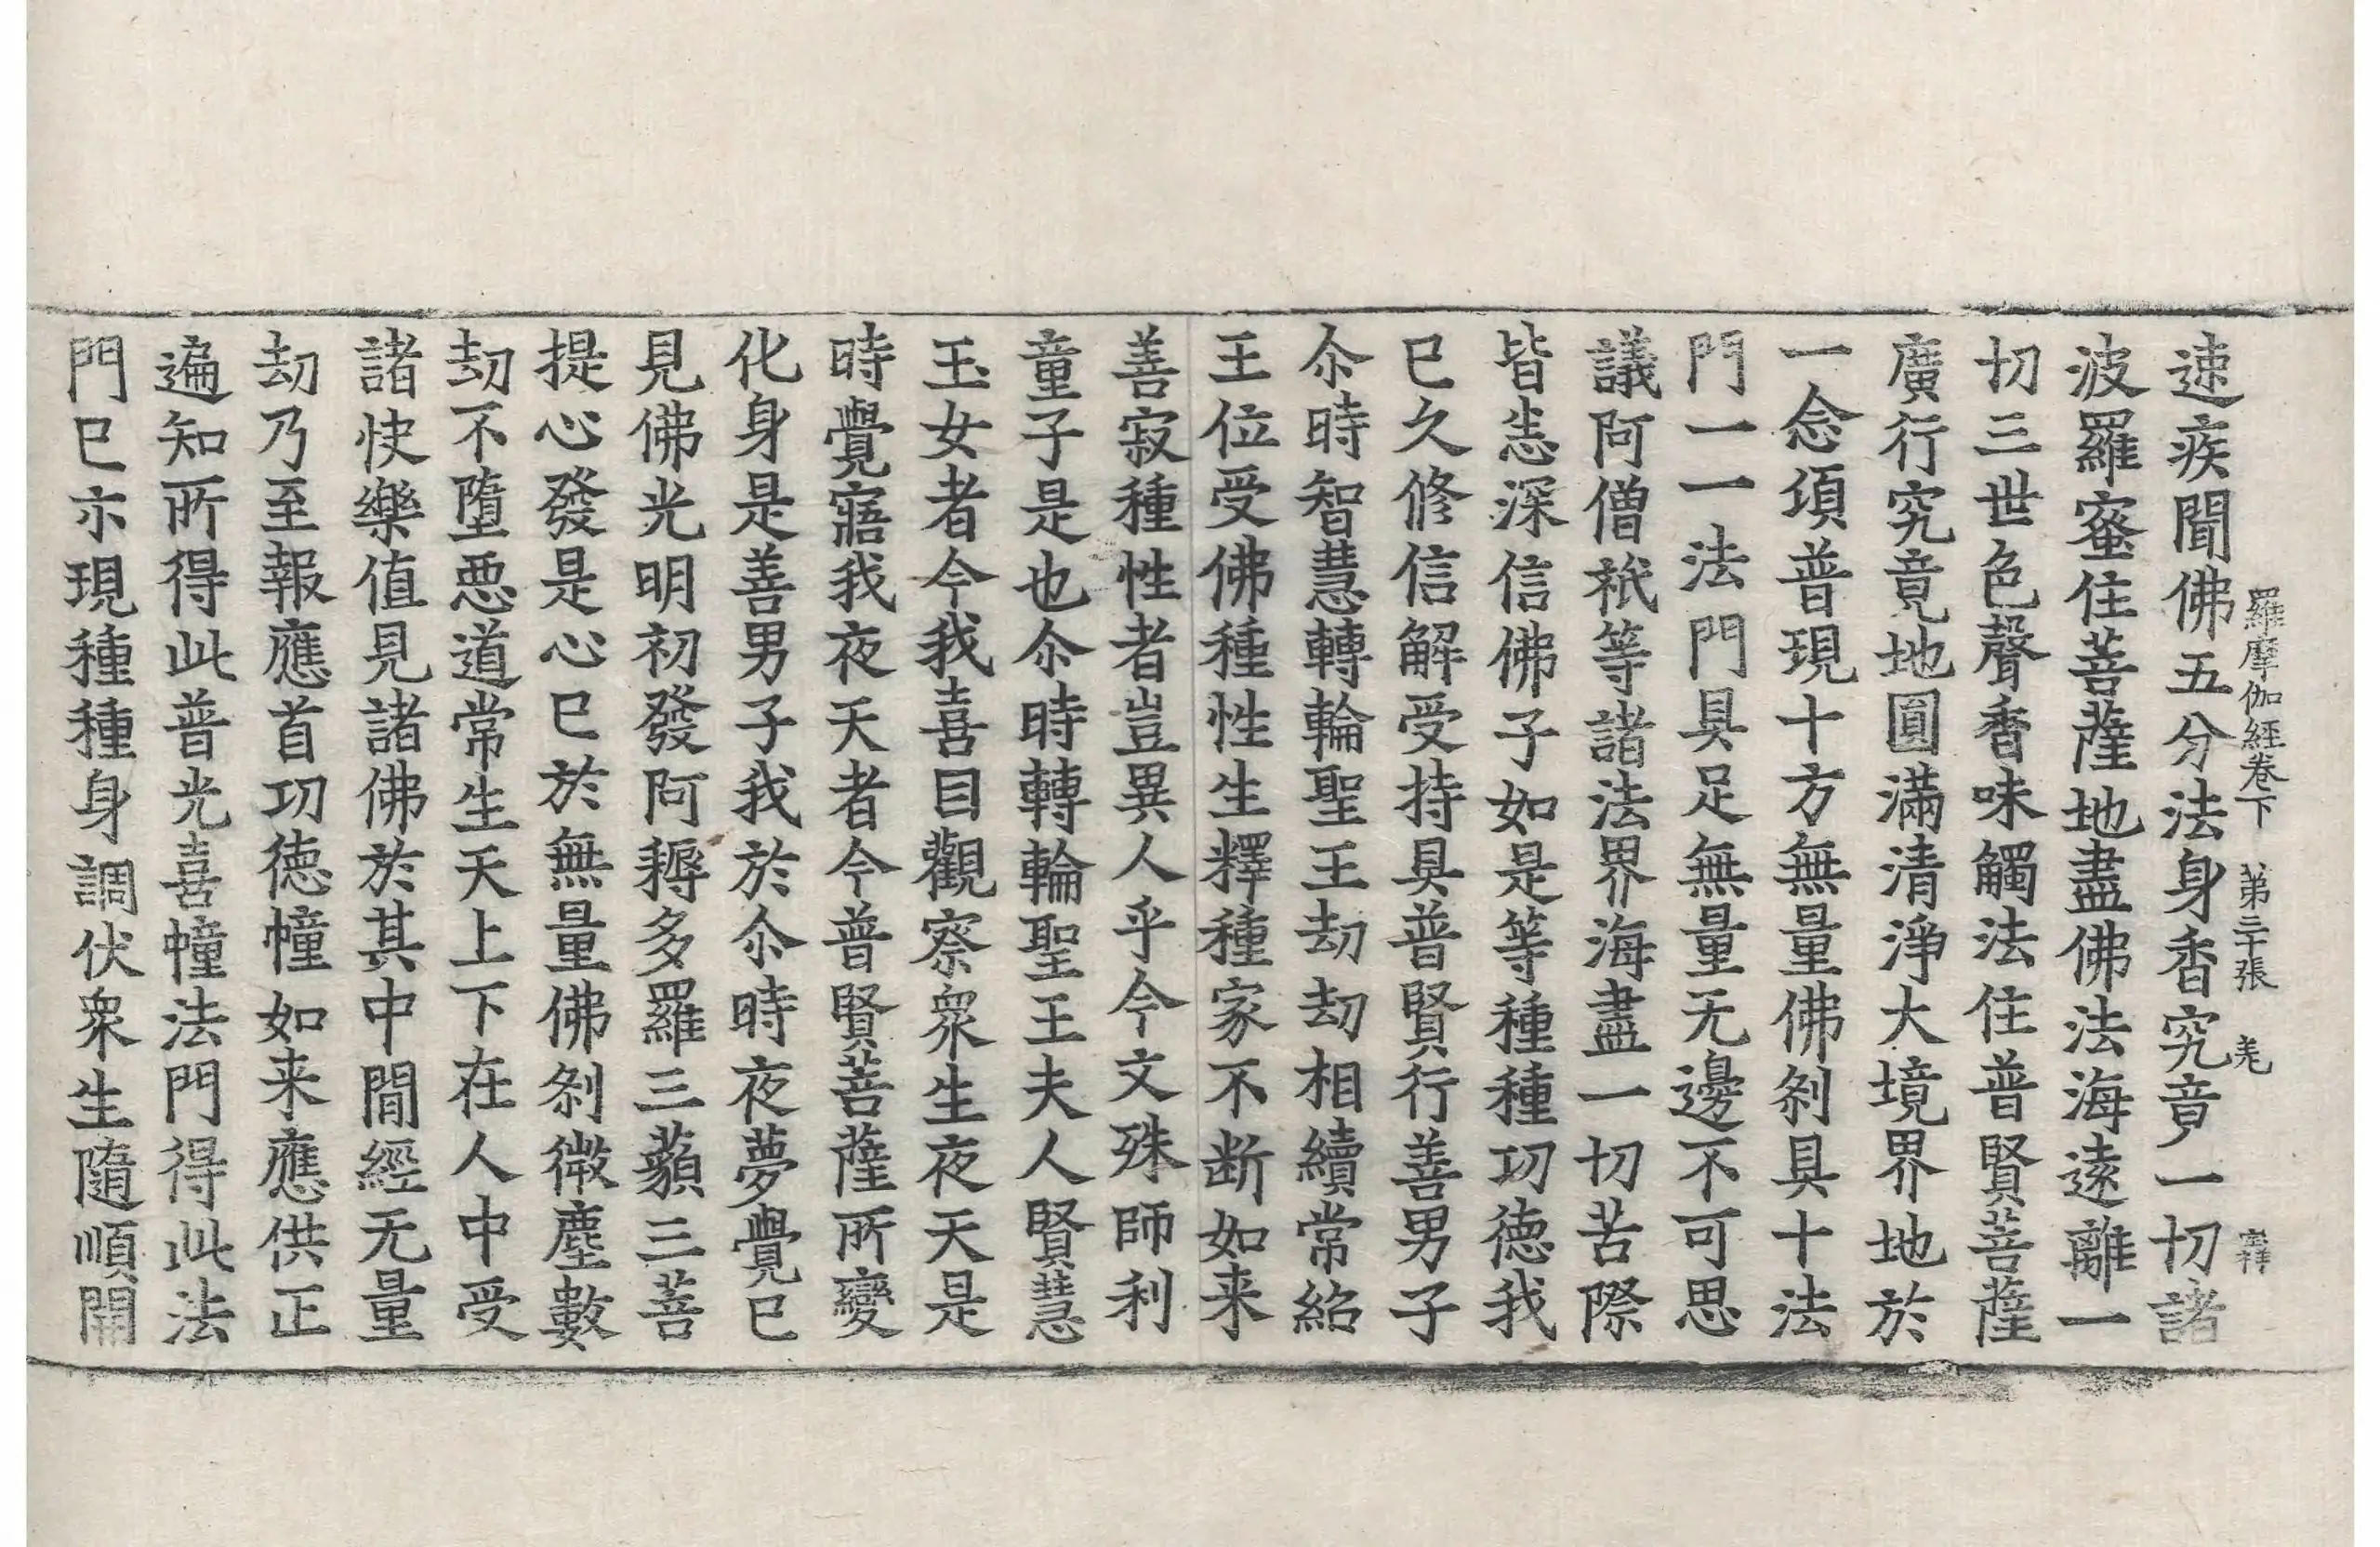 羅摩伽經卷下 第三十張 羌
速疾聞佛五分法身香究竟一切諸
波羅蜜住菩薩地盡佛法海遠離一
切三世色聲香味觸法住普賢菩薩
廣行究竟地圓滿清淨大境界地於
一念須普現十方無量佛剎具十法
門一一法門具足無量无邊不可思
議阿僧祇等諸法界海盡一切苦際
皆悉深信佛子如是等種種功德我
已久修信解受持具普賢行善男子
尒時智慧轉輪聖王劫劫相續常紹
王位受佛種性生釋種家不断如来
善寂種性者豈異人乎今文殊師利
童子是也尒時轉輪聖王夫人賢慧
玉女者今我喜目觀察衆生夜天是
時覺寤我夜天者今普賢菩薩所變
化身是善男子我於尒時夜夢覺已
見佛光明初發阿耨多羅三藐三菩
提心發是心已於無量佛剎微塵數
劫不墮惡道常生天上下在人中受
諸快樂值見諸佛於其中閒經无量
劫乃至報應首功德幢如来應供正
遍知所得此普光喜幢法門得此法
門已示現種種身調伏衆生隨順開